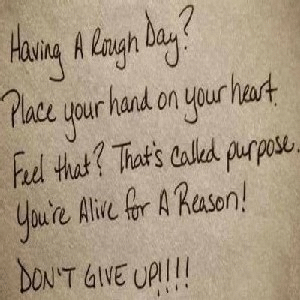 Having A Rough Day?
Place your hand on your heart.
Feel that? That's called purpose.
You're Alive for A Reason!
DON'T GIVE UP!!!!